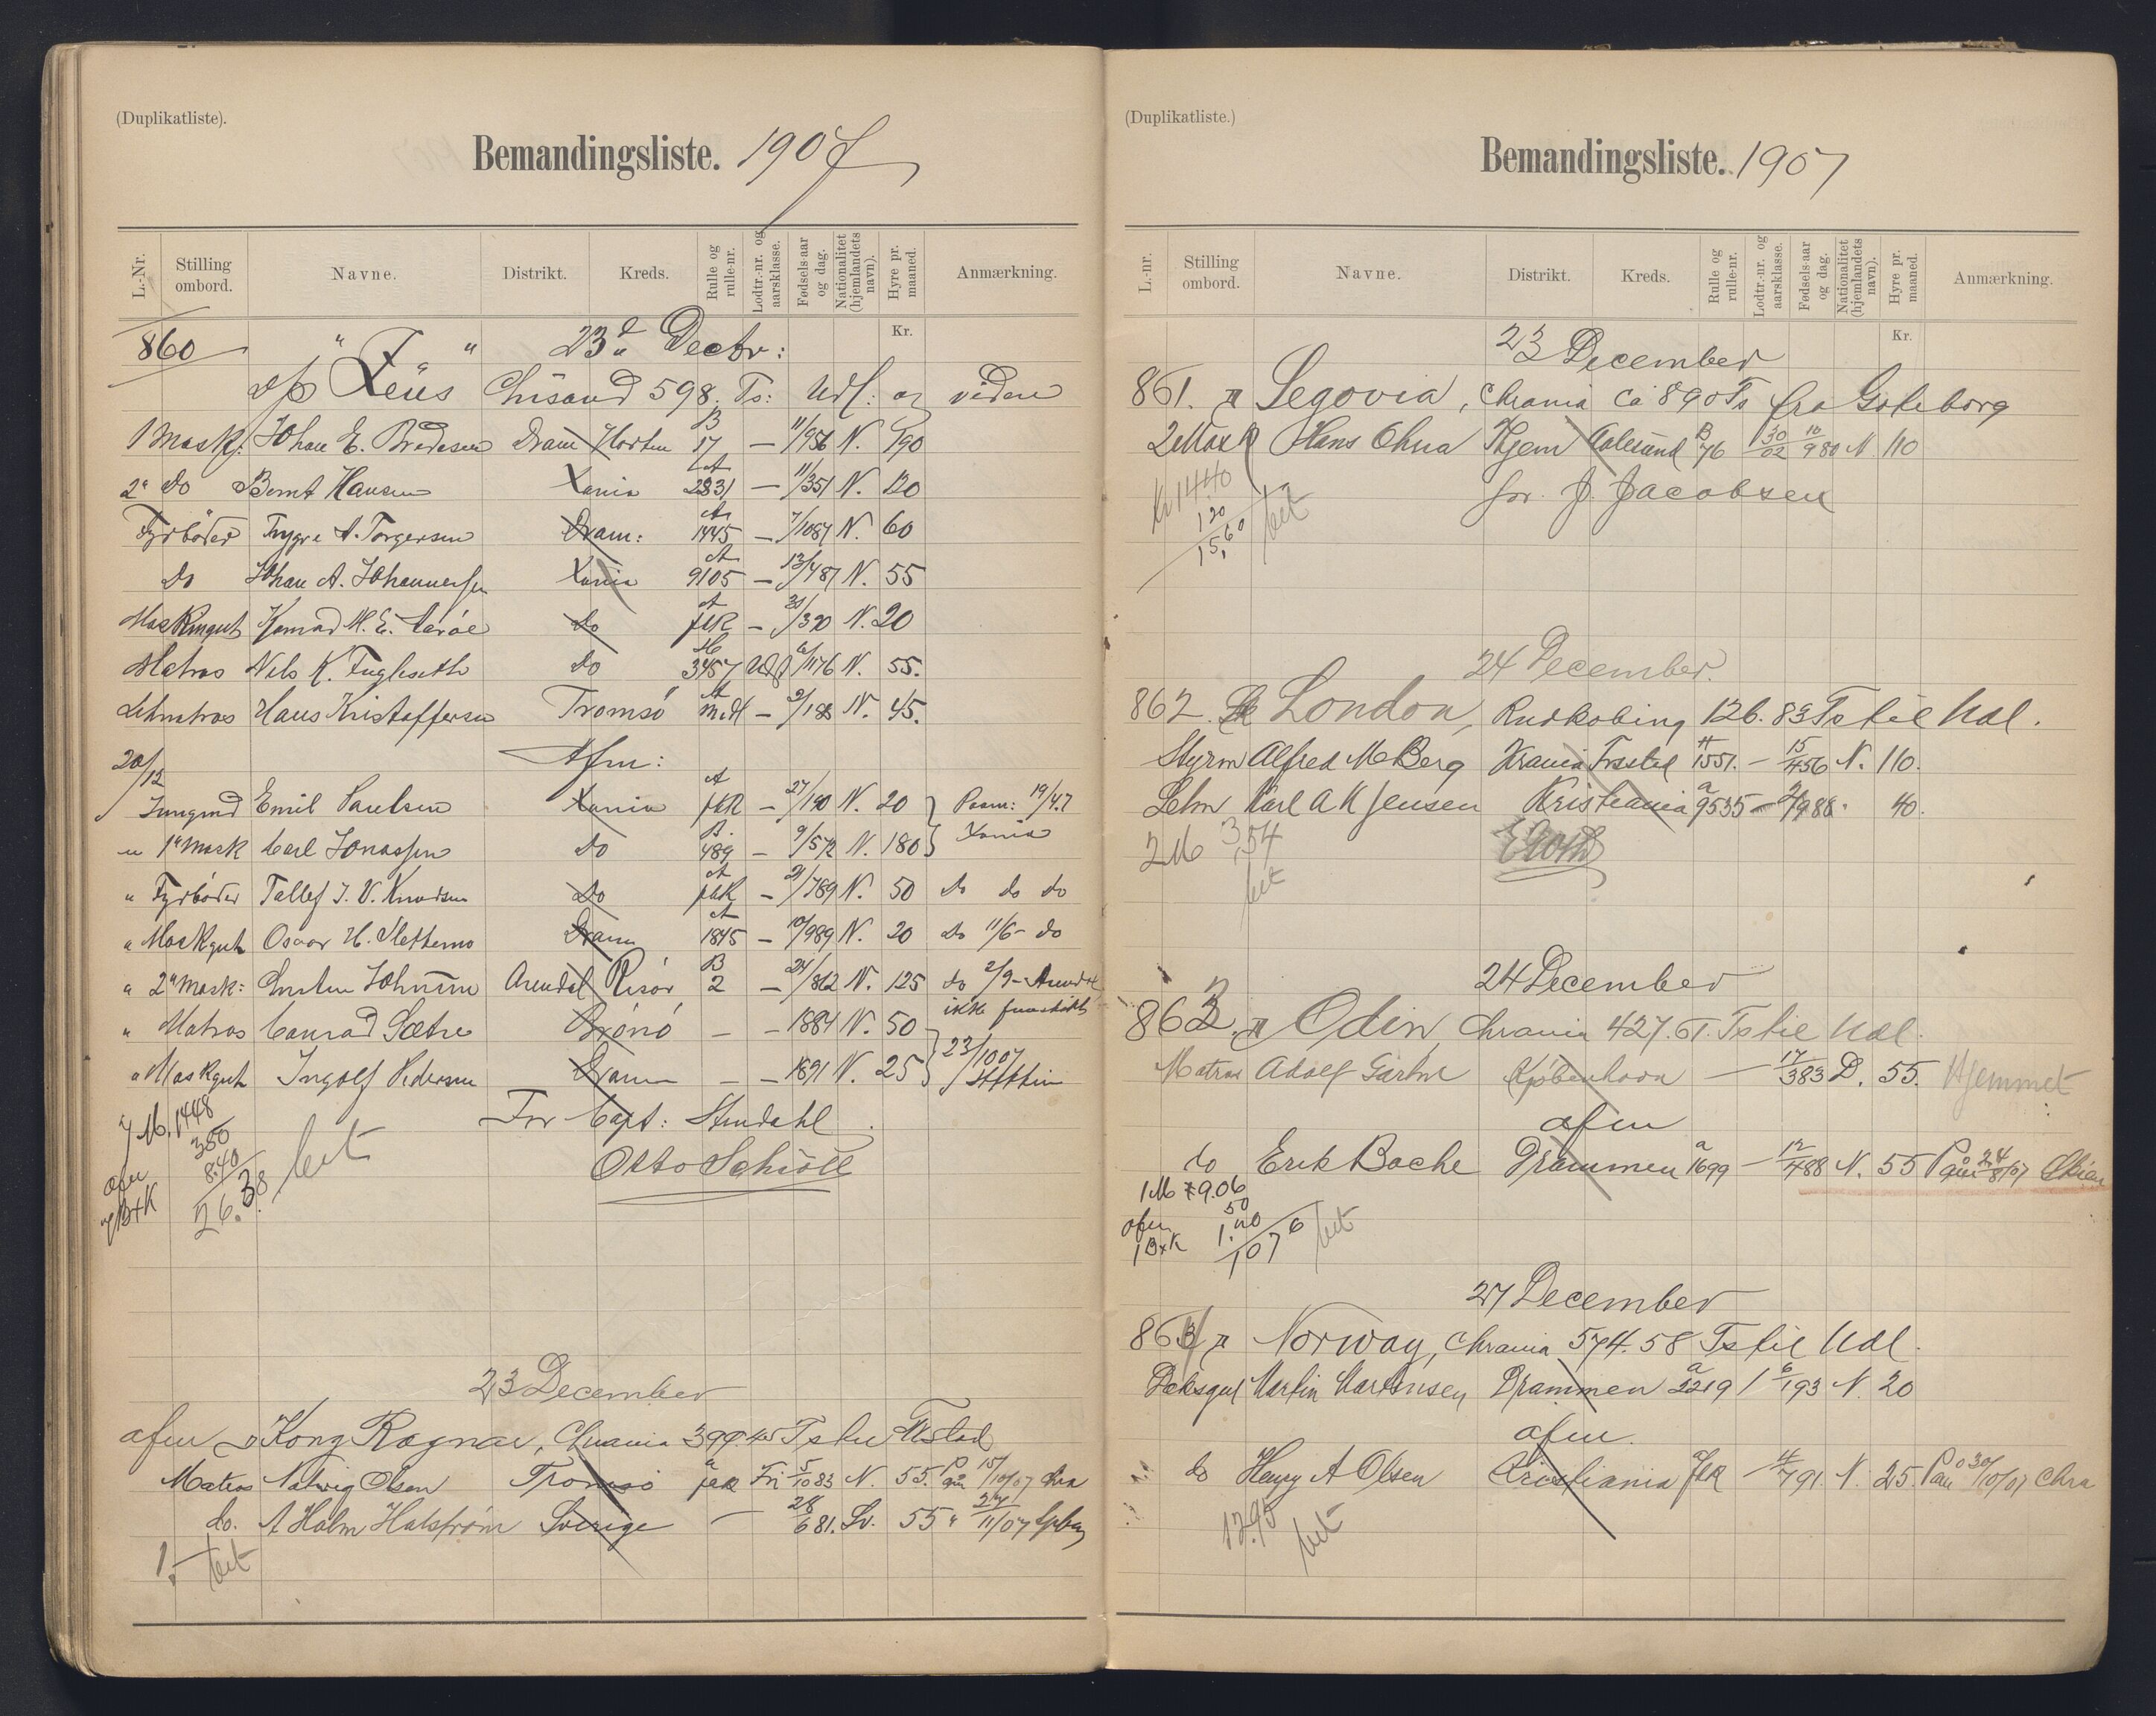 (Duplikatliste).
Bemandingsliste. 1907
L.-Nr. Stilling ombord. Navne. Distrikt. Kreds. Rulle og rulle-nr. Lodtr.-nr. og aarsklasse. Fødsels-aar og dag. Nationalitet (hjemlandets navn). Hyre pr. maaned. Anmærkning.
Kr.
860 23d Decbr:
d/s Zeus Chrsand 598. Ts: Udl: og videre
1 Mask. Johan E. Bredesen Dram Horten B 17 — 11/956 N. 190
2n do Bernt Hansen Xania A 2831 — 11/351 N. 120
Fyrbøder Trygve A. Torgersen Dram: A 1445 — 7/1087 N. 60
Do Johan A. Johannessen Xania A 9105 — 13/487 N. 55
Maskingut Konrad M. E. Xania do A fkR — 30/390 N. 20
Matros Nils K. Fuglseth do 3457 Udf 6/1176 N. 55.
Letmatros Hans Kristoffersen Tromsø A — N. 45.
Afm:
20/12
Jungmd Emil Paulsen Xania A fkR — 27/190 N. 20 Paam: 19/4.7
" 1n Mask Carl Jonassen do B. 489 — 9/572 N. 180 Xania
" Fyrbøder Tallef J. V. Knudsen Do A fkR — 21/789 N. 50 do do do
" Maskgut Oscar H. Slettemo Dram A 1845 — 10/989 N. 20 do 11/6 - do
" 2n Mask: Johnsen Arendal Risør B 2 — 24/862 N. 125 do 2/9 - Arendal
" Matros Conrad Sætre Brønø — — 1884 N. 50 ikke
" Maskgut Ingolf Pedersen Dram — — 1891 N. 25 23/10 07 Stettin
For Capt: Stendahl
Otto Schiøll
7 M. 1448
350
afm 8.40
7 B+K 26.38 bet
23 December
afm D Kong Ragnar, Chrania 399.45 Ts til Fkstad
Matros Natvig Olsen Tromsø a fkR Fri 5/10 83 N. 55. Paa 15/10/07 Chra
do. A Holm Halstrøm Sverige — 28/6 81. Sv. 55 " 27/11/07
1.- bet
(Duplikatliste.)
Bemandingsliste. 1907
L.-nr. Stilling ombord. Navne. Distrikt. Kreds. Rulle og rulle-nr. Lodtr.-nr. og aarsklasse. Fødsels-aar og dag. Nationalitet (hjemlandets navn). Hyre pr. maaned. Anmærkning.
Kr.
23 December
861. D Segovia, Chrania Ca 890 Ts fra Goteborg
2 Mask Hans Ohna Thjem Aalesund B 76 1 30/02 16/980 N 110
for. J. Jacobsen
Kr 14.40
1.20
15,60 bet
24 December.
862. Sk London, Rudkobing 126.83 Ts til Udl.
Styrm Alfred M Berg Krania Frsted A 1551. — 15/456 N. 110.
Letm Karl A K Jensen Kristiania a 9535 — 988 " 40.
2 M 3,54
bet
24 December
863. D Odin, Chrania 427.61. Ts til Udl.
Matros Adolf Gartne Kjøbenhavn — 17/383 D. 55. Hjemmet
afm
do Erik Bache Drammen a 1699 — 12/488 N. 55 Paa 24/8/07 Chra
1 M 9.06
50
afm 1.20
1 B+K 1076 bet
27 December
864 D Norway, Chrania 574.58 Ts til Udl.
Deksgut Martin Martinsen Drammen a 2219 / 6/193 N. 20
afm.
do Henry A Olsen Cristiania a fkR — 4/791. N. 25. Paa 30/10/07 Chra
12.95
bet